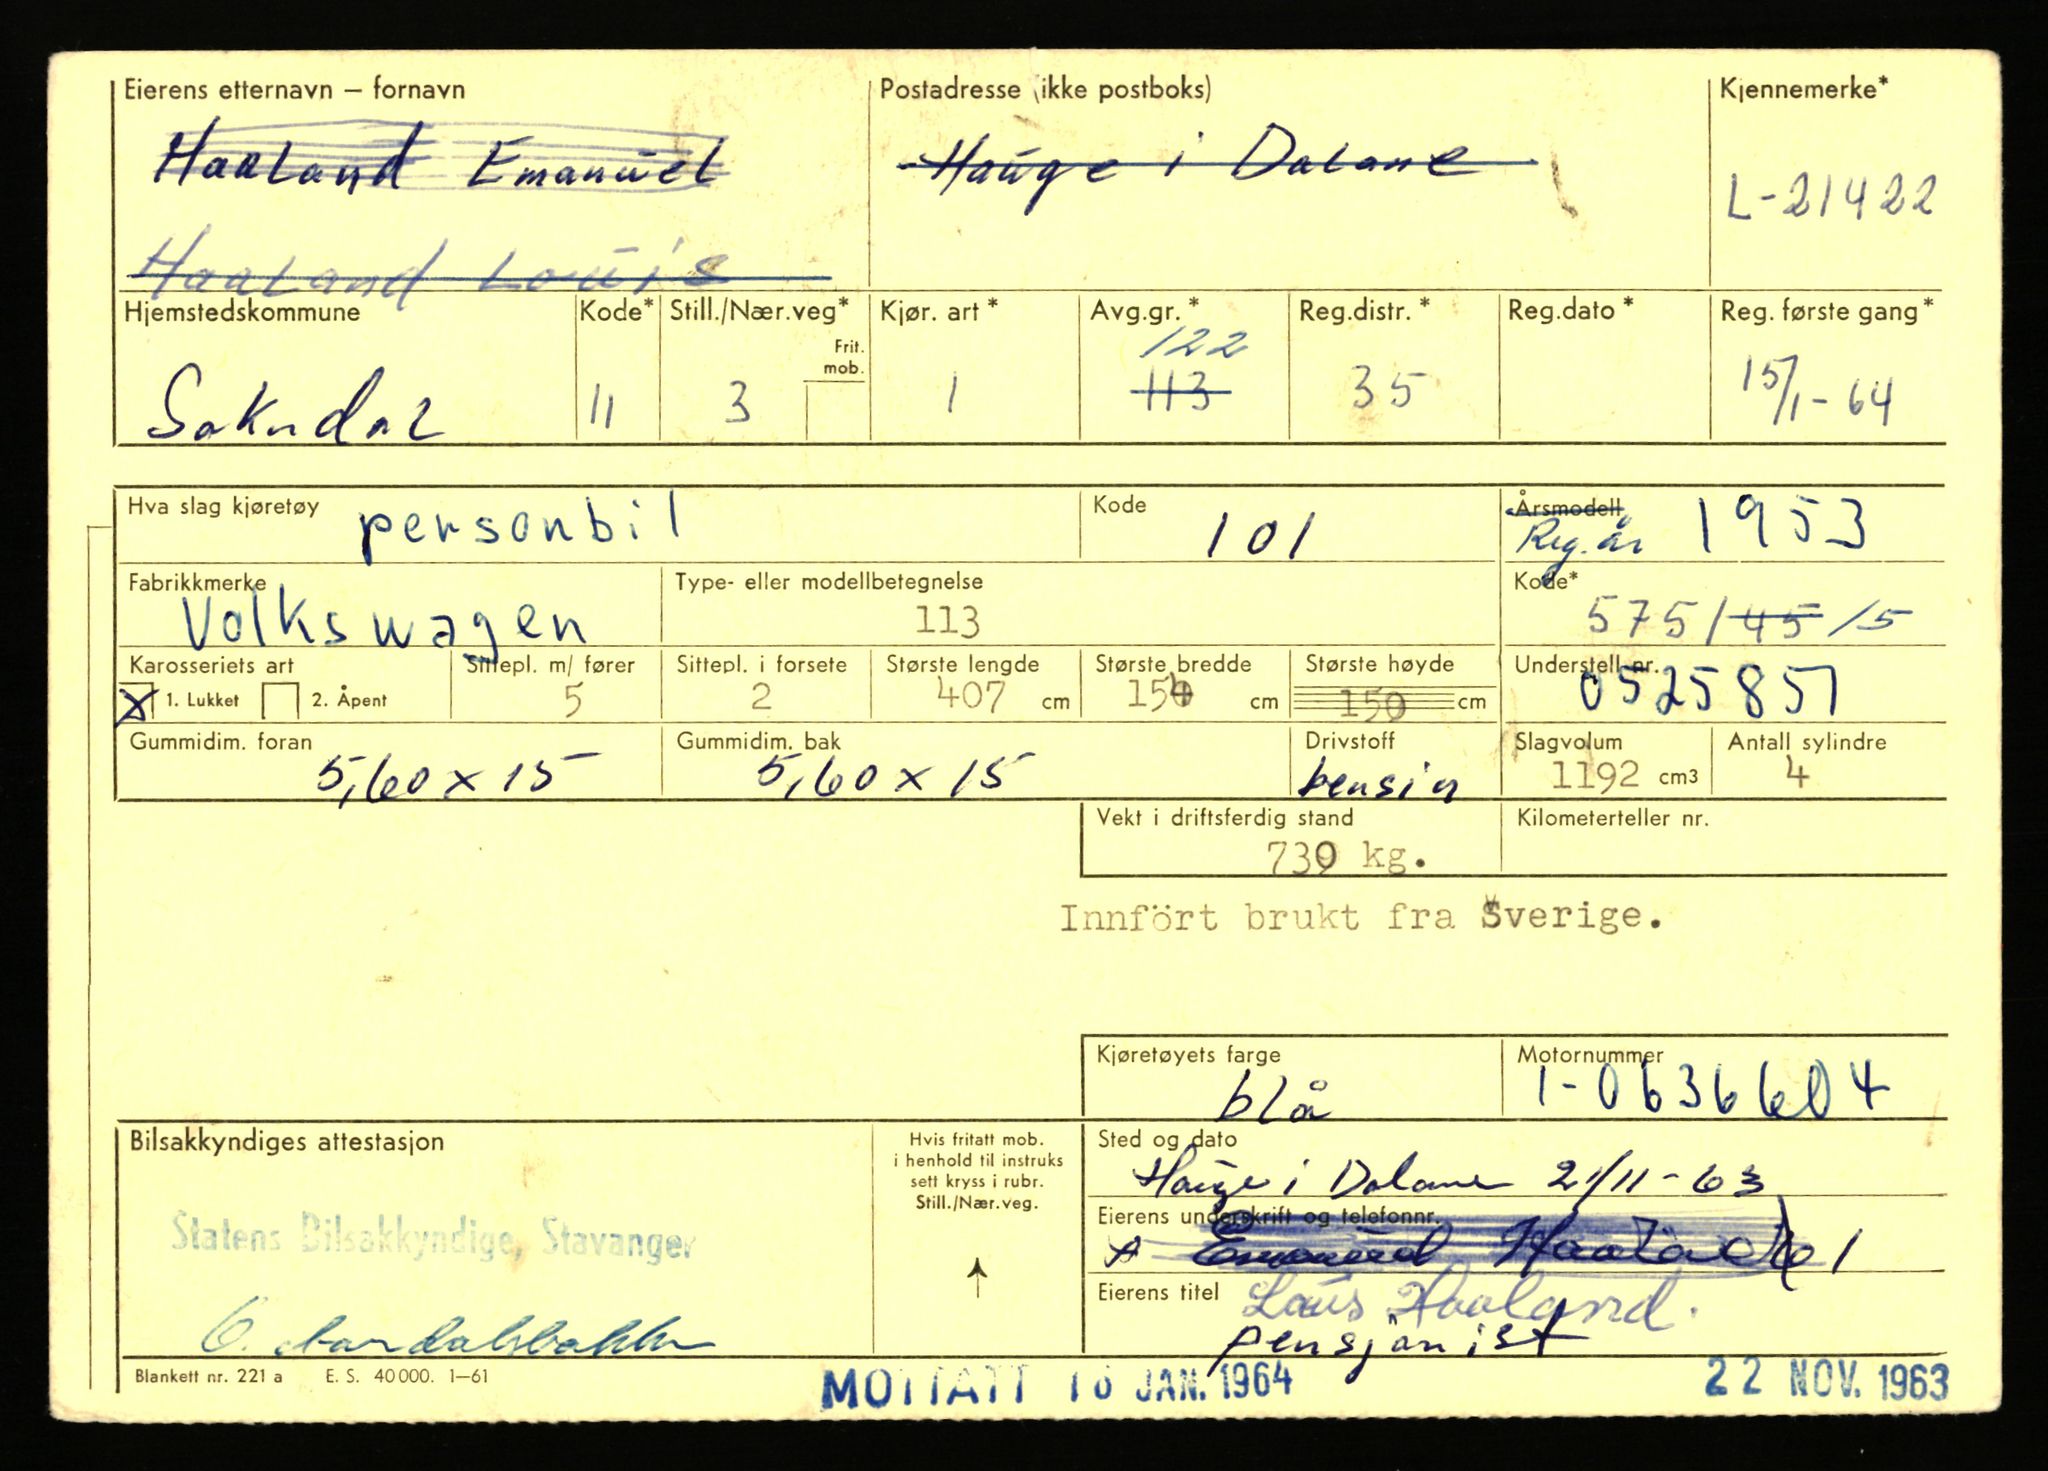 Eierens etternavn – fornavn Postadresse (ikke postboks) Kjennemerke*
Haaland Emanuel Hauge i Dalane L-21422
Haaland Louis
Hjemstedskommune Kode* Still./Nær.veg* Kjør. art* Avg.gr.* Reg.distr.* Reg.dato* Reg. første gang*
Frit. mob. 122
Sokndal 11 3 1 113 35 15/1-64
Hva slag kjøretøy personbil Kode 101 Årsmodell 1953
Reg. år
Fabrikkmerke Type- eller modellbetegnelse Kode*
Volkswagen 113 575/45/5
Karosseriets art Sittepl. m/ fører Sittepl. i forsete Største lengde Største bredde Største høyde Understell nr.
X 1. Lukket 2. Åpent 5 2 407 cm 154 cm 150 cm 0525857
Gummidim. foran Gummidim. bak Drivstoff Slagvolum Antall sylindre
5,60 x 15 5,60 x 15 bensin 1192 cm3 4
Vekt i driftsferdig stand Kilometerteller nr.
730 kg.
Innfört brukt fra Sverige.
Kjøretøyets farge Motornummer
blå 1-0636604
Bilsakkyndiges attestasjon
Hvis fritatt mob.
i henhold til instruks
sett kryss i rubr.
Still./Nær.veg.
Sted og dato
Hauge i Dalane 21/11-63
Eierens underskrift og telefonnr.
Emanuel Haaland
Statens Bilsakkyndige, Stavanger
Eierens titel Louis Haaland.
pensjonist
Blankett nr. 221 a E. S. 40 000. 1–61
MOTTATT 16 JAN. 1964 22 NOV. 1963